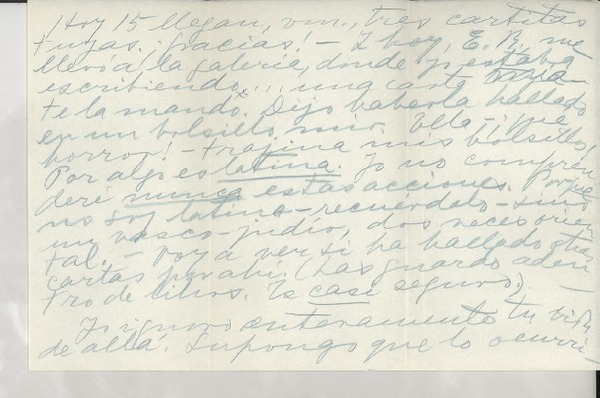 ¡Hoy 15 llegan, vm., tres cartitas
tuyas. ¡Gracias! - Y hoy, E. R. me
llevó a la galería, donde yo estaba
escribiendo... una carta mía
te la mando.ˣ Dijo haberla hallado
en un bolsillo mío. Ella - ¡qué
horror! - trajina mis bolsillos,
Por algo es latina. Yo no compren
deré nunca estas acciones. Porque
no soy latino - recuérdalo - sino
un vasco-judío, dos veces orien
tal. - Voy a ver si ha hallado otras
cartas por ahí. (Las guardo aden
tro de libros. Es casi seguro).
Yo ignoro enteramente tu vida
de allá. Supongo que lo ocurri-